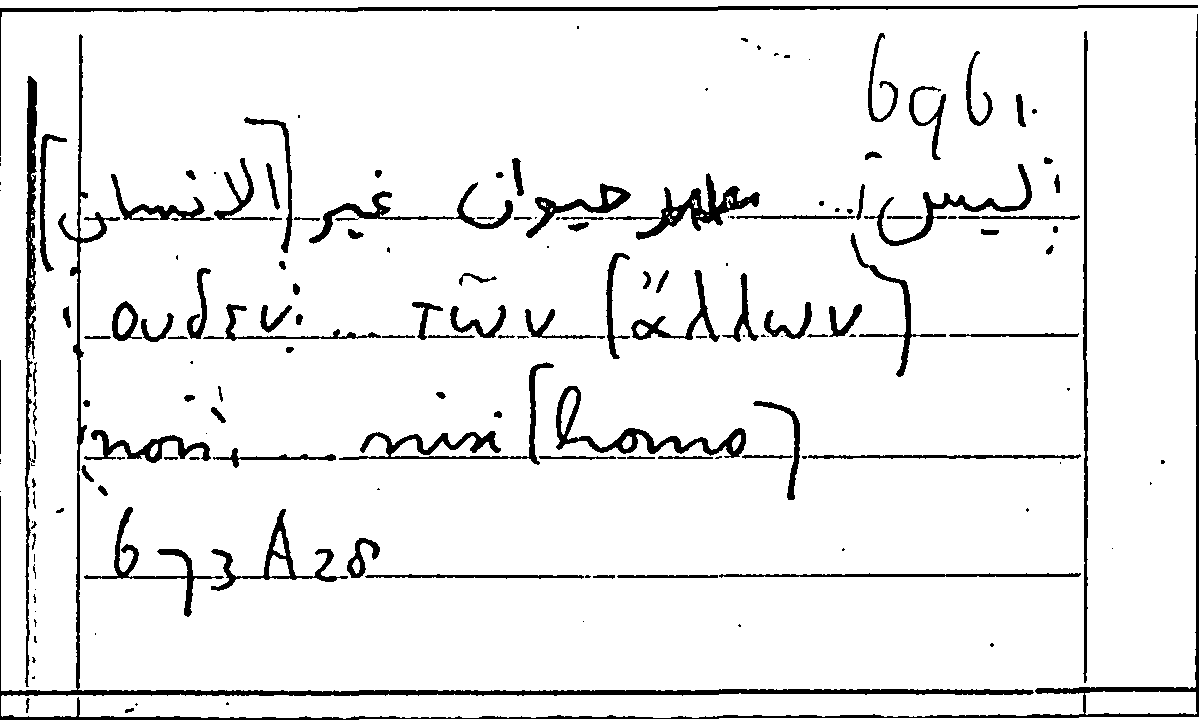 6961.
ليس ... حيوان غير [الانسان]
ουδενι ... τῶν [ἄλλων]
non ... nisi [homo]
673A28